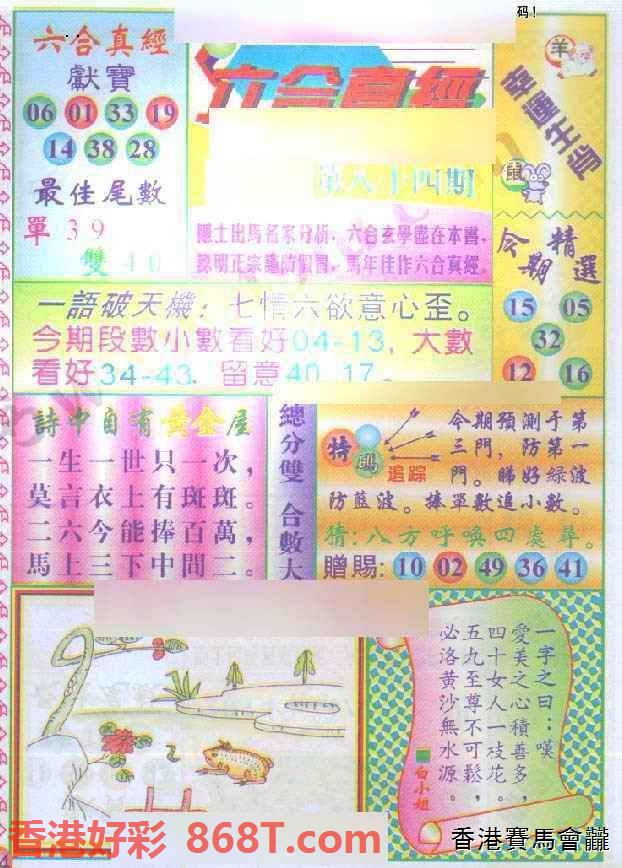 码!
六合真經
獻寶
06 01 33 19
14 38 28
最佳尾數
單 39
雙 40
六合真經
第八十四期
隱士出馬名家分析，六合玄學盡在本書，
馬年佳作六合真經。
羊
幸運生肖
鼠
今期精選
15 05
32
12 16
一語破天機：七情六欲意心歪。
今期段數小數看好04-13，大數
看好34-43．留意40．17。
詩中自有黃金屋
一生一世只一次，
莫言衣上有斑斑。
二六今能捧百萬，
馬上三下中間二。
總分雙 合數大
特碼
追踪
今期預測于第
三門，防第一
門。睇好綠波
防藍波。捧單數追小數。
猜：八方呼喚四處尋。
贈賜：10 02 49 36 41
一字之曰：嘆
愛美之心積善多，
四十女人一枝花。
五九至尊不可鬆，
必洛黃沙無水源。
白小姐
香港好彩 868T.com
香港賽馬會